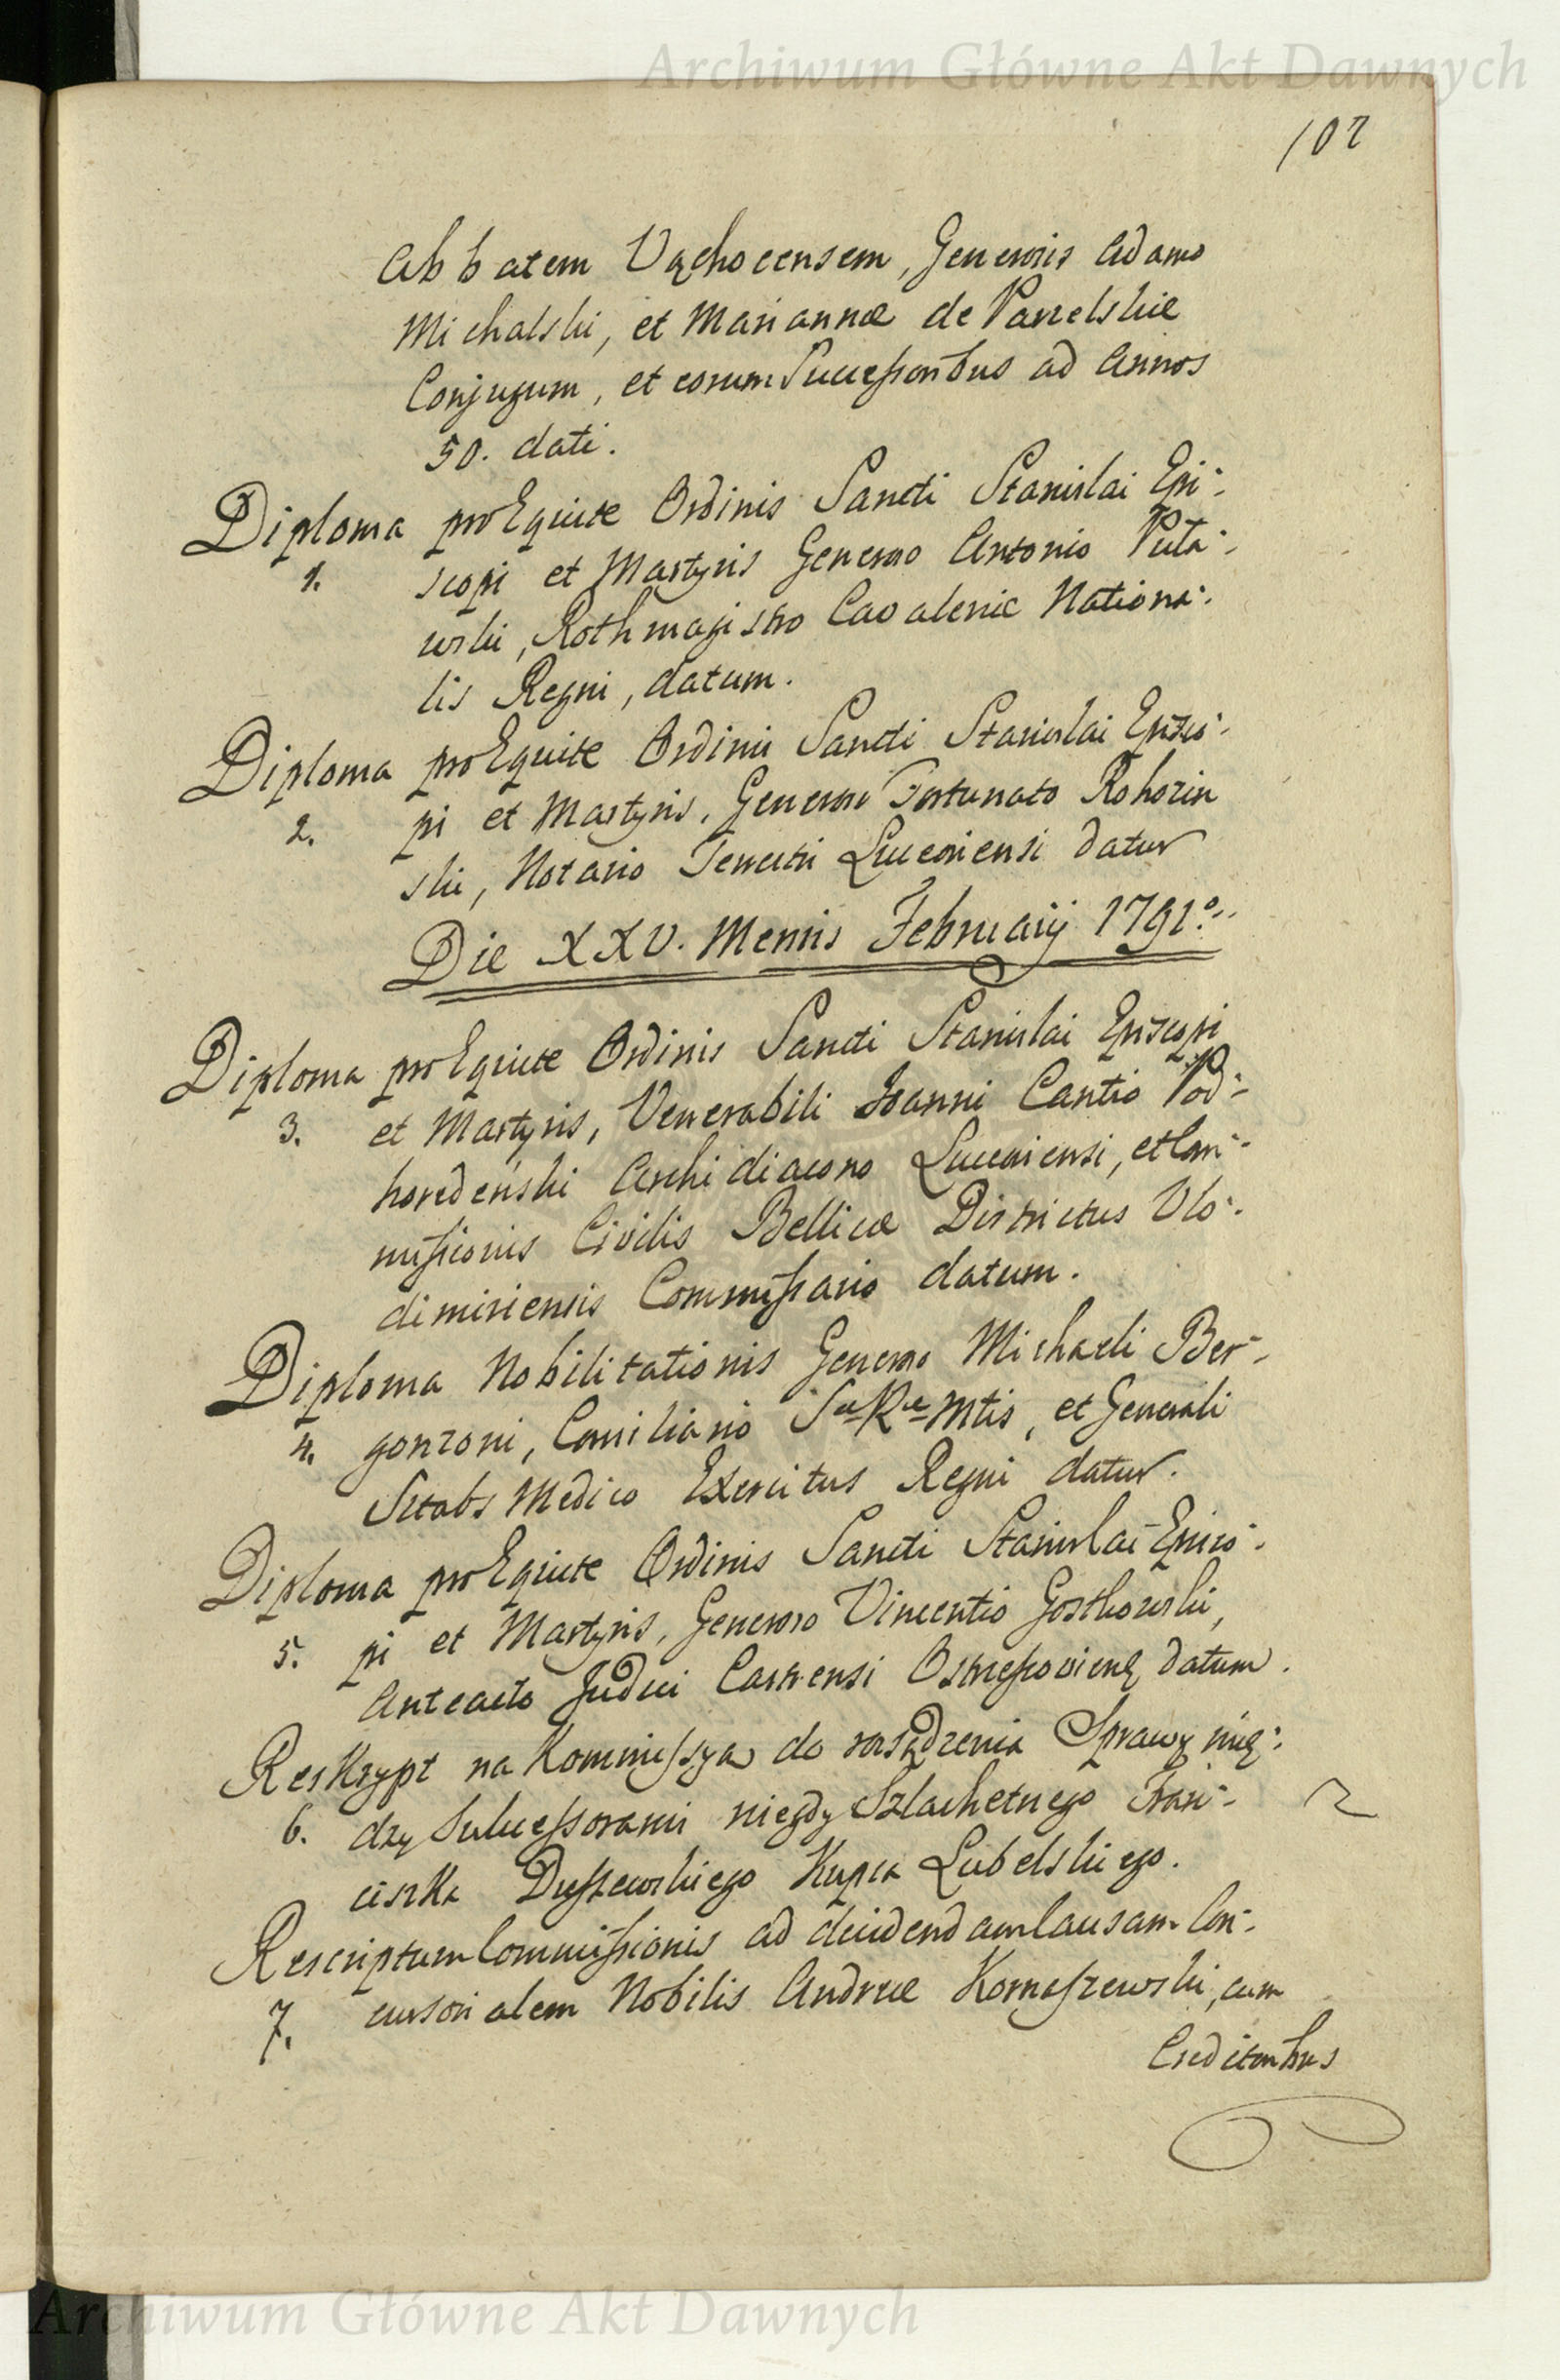 Archiwum Główne Akt Dawnych
102
Abbatem Vąchocensem, Generosis Adamo
Michalski, et Mariannæ de Parzelskie
Conjugum, et eorum Succeſsoribus ad Annos
50. dati.
Diploma pro Equite Ordinis Sancti Stanislai Epi-
1. scopi et Martyris Generoso Antonio Puła-
wski, Rothmagistro Cavaleriæ Nationa-
lis Regni, datum.
Diploma pro Equite Ordinis Sancti Stanislai Episco-
2. pi et Martyris, Generoso Fortunato Rohozin
ski, Notario Terrestri Luceoriensi datur
Die XXV. Mensis Februarij 1791º
Diploma pro Equite Ordinis Sancti Stanislai Episcopi
3. et Martyris, Venerabili Joanni Cantio Pod-
horodeński Archidiacono Luceoriensi, et Com-
miſsionis Civilis Bellicæ Districtus Vlo-
dimiriensis Commiſsario datum.
Diploma Nobilitationis Generoso Michaeli Ber-
4. gonzoni, Consiliario Sæ Ræ Mtis, et Generali
Sztabs Medico Exercitus Regni datur.
Diploma pro Equite Ordinis Sancti Stanislai Episco-
5. pi et Martyris, Generoso Vincentio Gostkowski,
Anteacto Judici Castrensi datum.
Reskrypt na Kommiſsyą do rosądzenia Sprawy mię-
6. dzy Sukceſsorami niegdy Szlachetnego Fran-
ciszka Duſzewskiego Kupca Lubelskiego.
Rescriptum Commiſsionis ad decidendam Causam Con-
7. cursorialem Nobilis Andreæ Kornaſzewski, cum
Creditoribus
Archiwum Główne Akt Dawnych